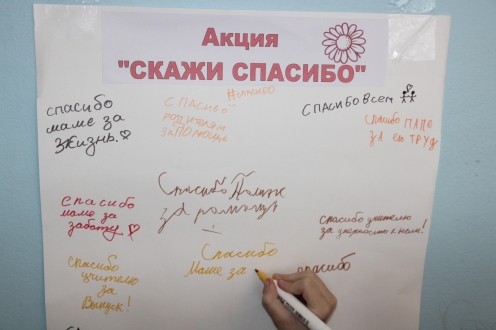 Акция
"СКАЖИ СПАСИБО"
спасибо
маме за
жизнь.
#спасибо
СПАСИБО
РОДИТЕЛЯМ
ЗА ПОМОЩЬ
СПАСИБО Всем
Спасибо ПАПЕ
ЗА ЕГО ТРУД
Спасибо
маме за
заботу
Спасибо
за помощь
Спасибо учителю
за
к нам!
Спасибо
учителю
за
Выпуск!
Спасибо
Маме за
спасибо